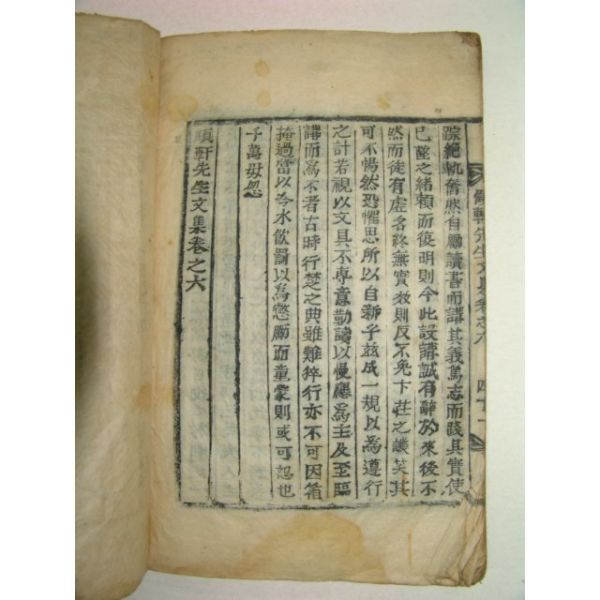 踪絶軌奮然自勵讀書而講其義篤志而踐其實使
已墜之緖頼而復明則今此設講誠有辭於來後不
然而徒有虛名終無實效則反不免卞莊之譏笑其
可不惕然恐懼思所以自新乎玆成一規以爲遵行
之計若視以文具不專意勤讀以慢應爲主及至臨
講而爲不者古時行楚之典雖難猝行亦不可因循
掩過當以冷水飮罰以爲懲勵而童蒙則或可恕也
千萬毋忽
軒先生文集卷之六
軒先生文集卷之六 四十一